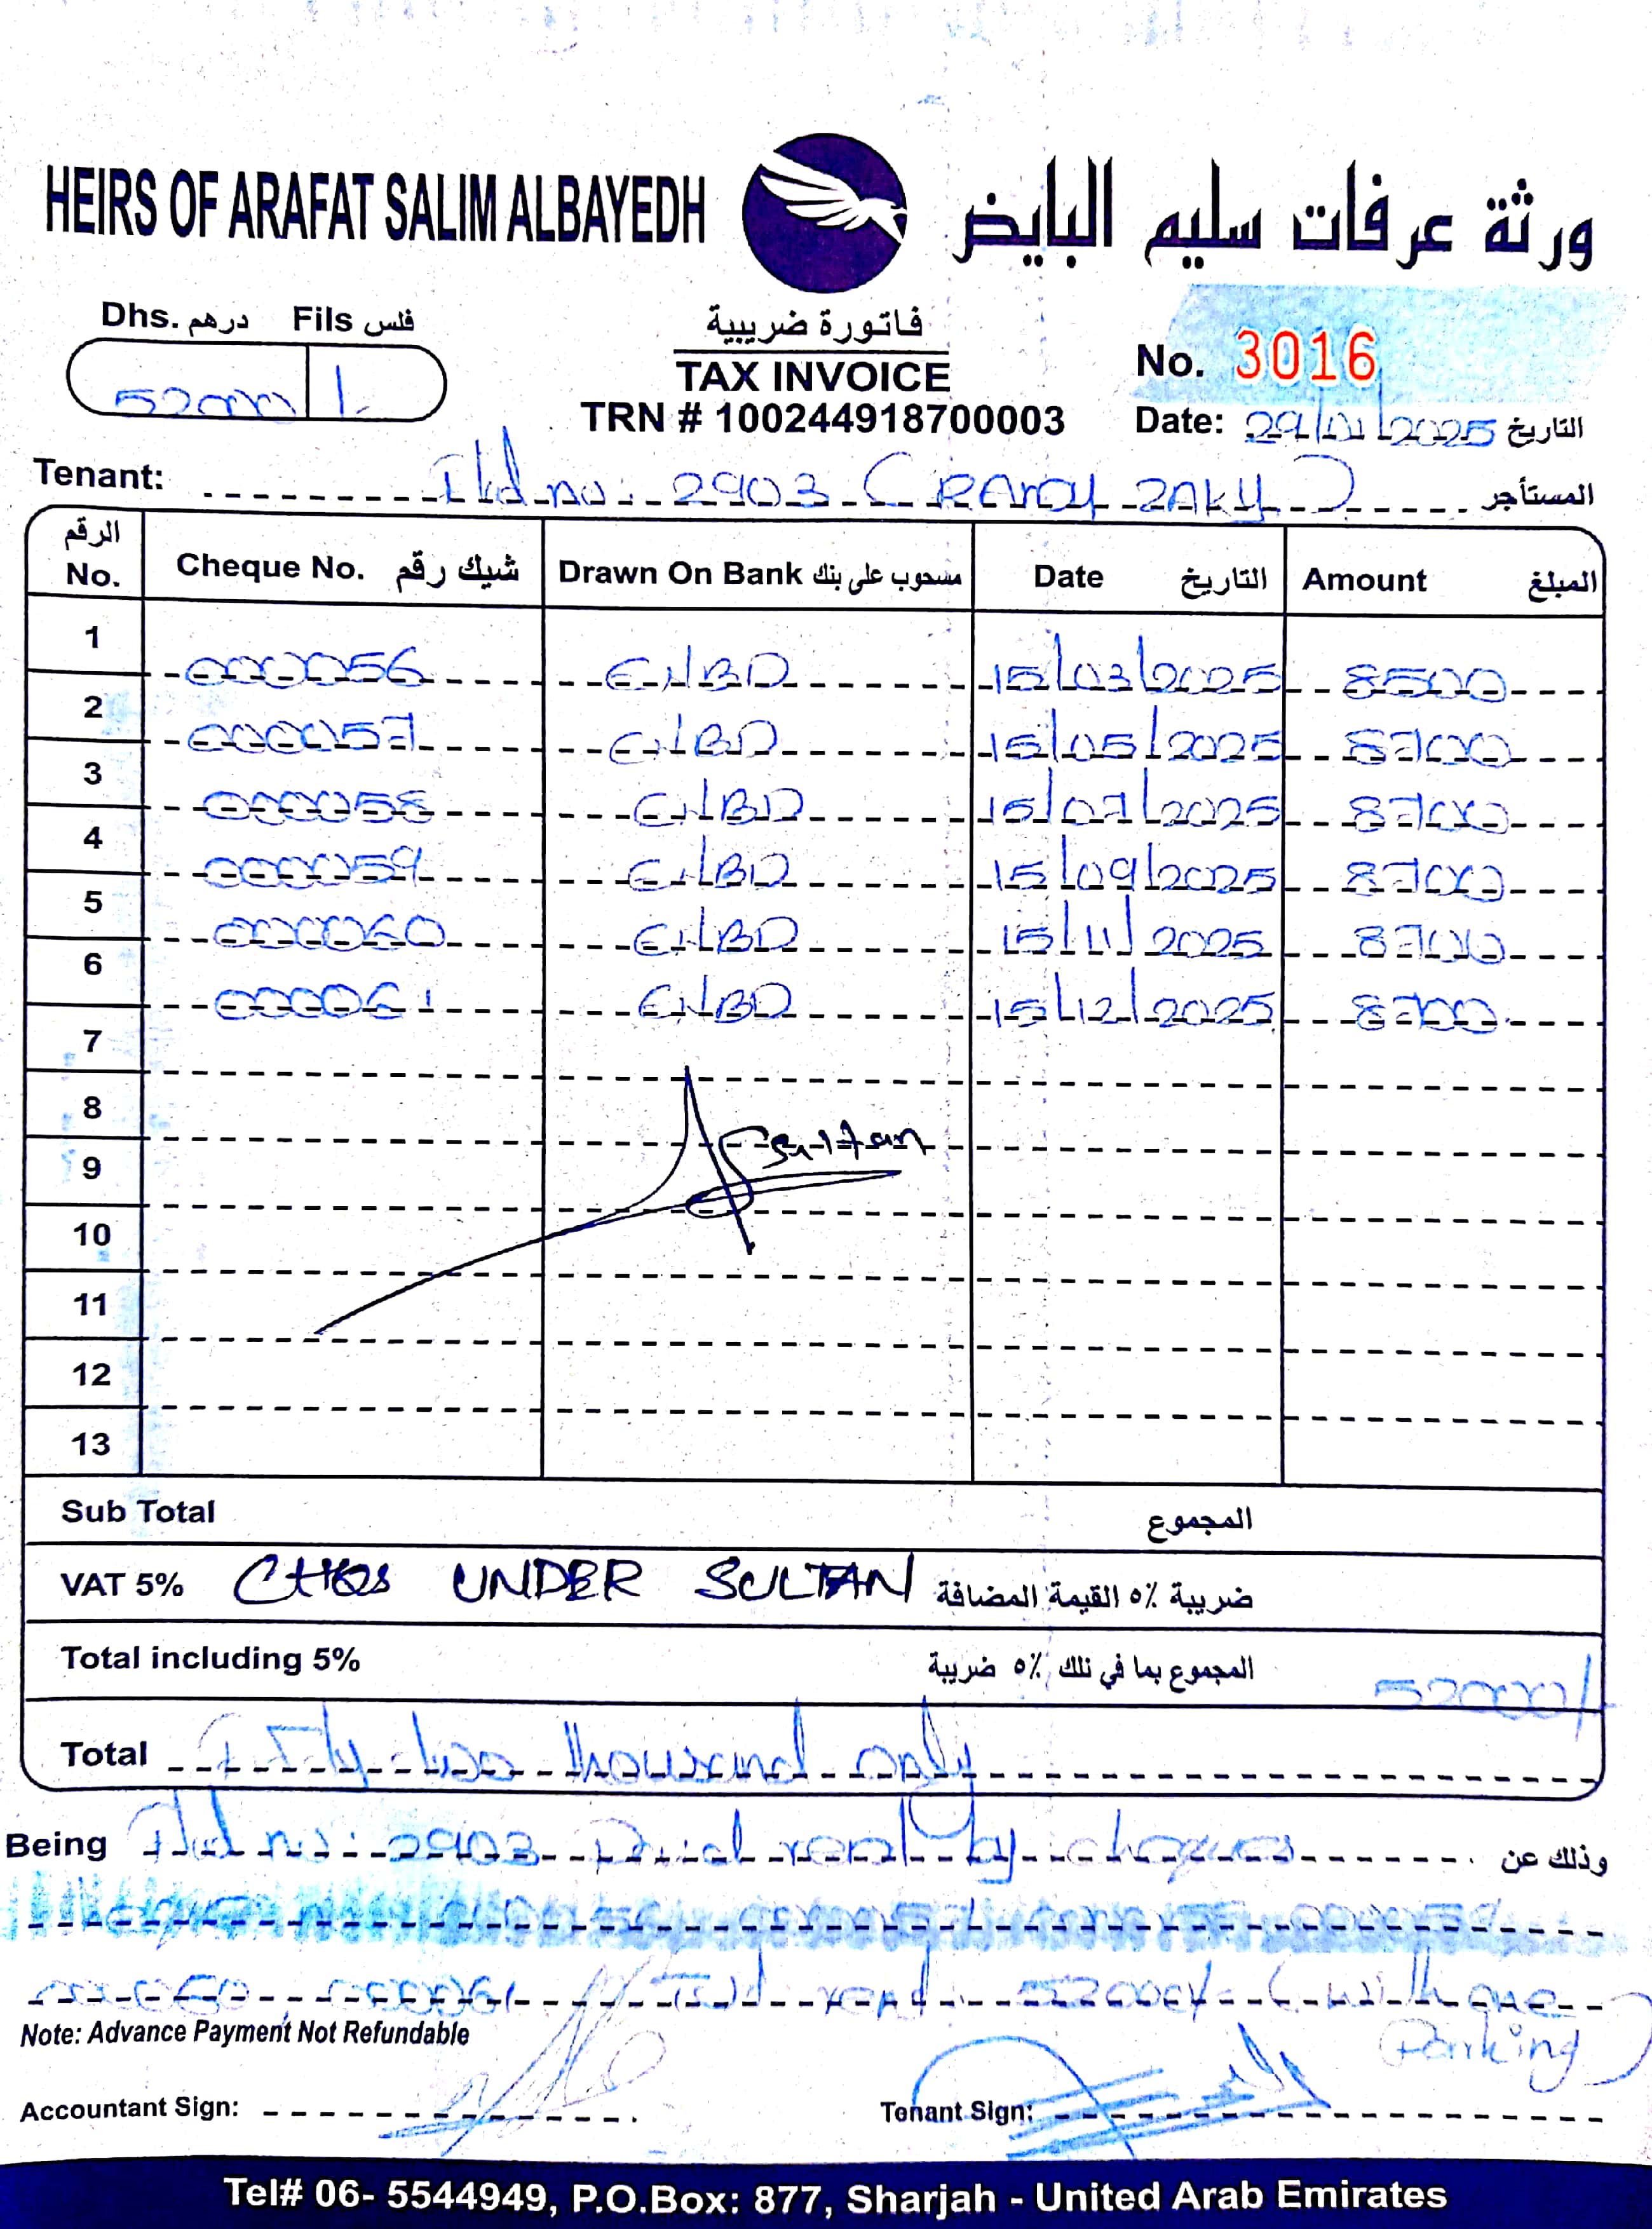 HEIRS OF ARAFAT SALIM ALBAYEDH ورثة عرفات سليم البايض
Dhs. درهم Fils فلس
52000 /-
فاتورة ضريبية
TAX INVOICE
TRN # 100244918700003
No. 3016
Date: 29/01/2025 التاريخ
Tenant: Flat no: 2903 ( RAmy ZAKY ) المستأجر
الرقم No. Cheque No. شيك رقم Drawn On Bank مسحوب على بنك Date التاريخ Amount المبلغ
1 000056 ENBD 15/03/2025 8500
2 000057 ENBD 15/05/2025 8700
3 000058 ENBD 15/07/2025 8700
4 000059 ENBD 15/09/2025 8700
5 000060 ENBD 15/11/2025 8700
6 000061 ENBD 15/12/2025 8700
7
8
Sultan
9
10
11
12
13
Sub Total المجموع
VAT 5% CHQS UNDER SULTAN ضريبة ٥٪ القيمة المضافة
Total including 5% المجموع بما في ذلك ٥٪ ضريبة 52000/-
Total Fifty two thousand only
Being Flat no: 2903 Paid rent by cheques وذلك عن
000060 000061 // Full rent 52000/- ( with one
Parking )
Note: Advance Payment Not Refundable
Accountant Sign:
Tenant Sign:
Tel# 06- 5544949, P.O.Box: 877, Sharjah - United Arab Emirates